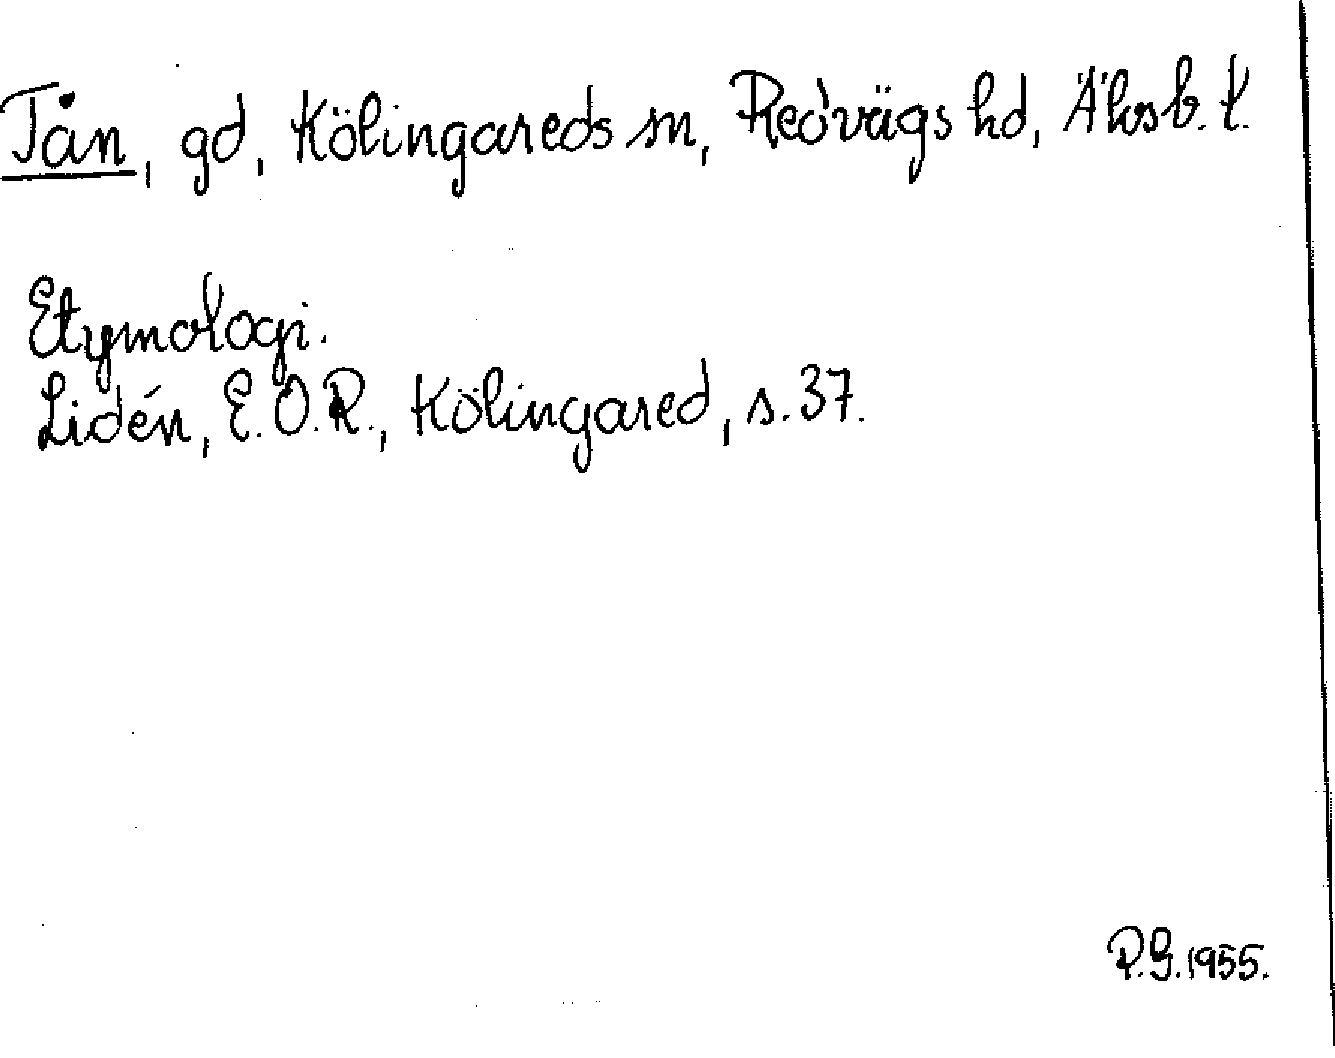 Tån, gd, Kölingareds sn, Redvägs hd, Älvsb. l.
Etymologi.
Lidén, E.O.R., Kölingared, s. 37.
P.G. 1955.